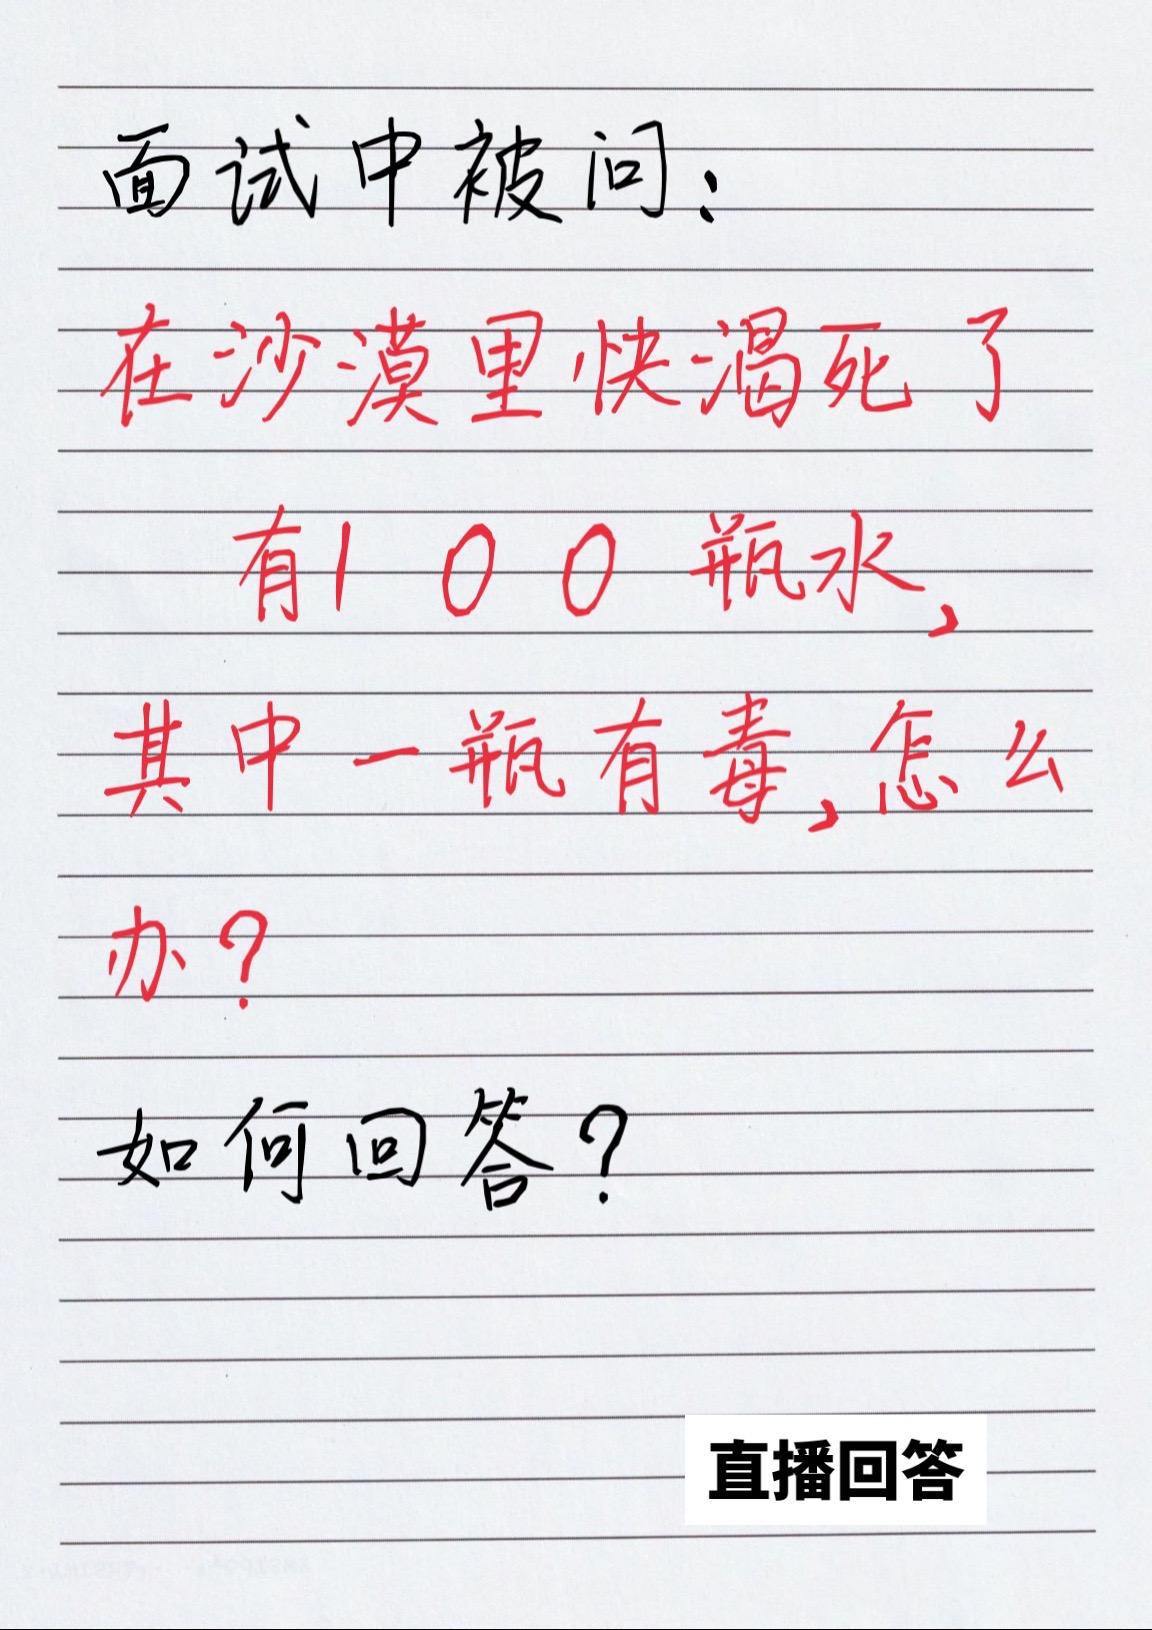 面试中被问：
在沙漠里快渴死了
有100瓶水，
其中一瓶有毒，怎么
办？
如何回答？
直播回答